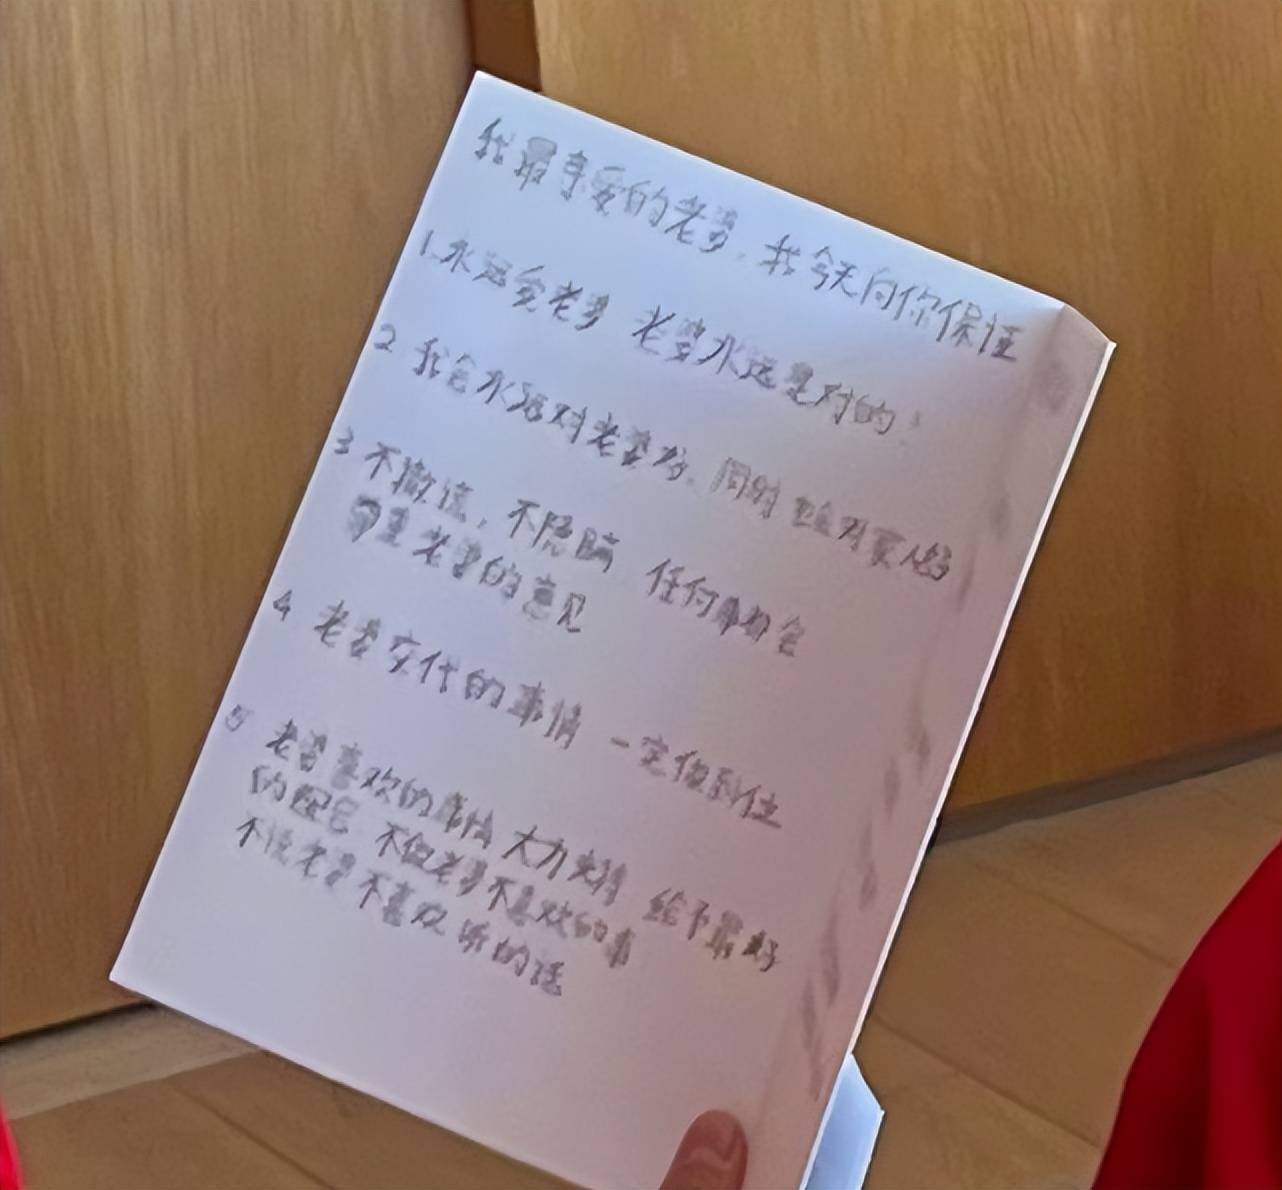 我最亲爱的老婆，我今天向你保证
1.永远爱老婆 老婆永远是对的！
2 我会永远对老婆好，同时 也会对家人好
3 不撒谎，不隐瞒 任何事都会
尊重老婆的意见
4 老婆交代的事情 一定做到位
5 老婆喜欢的事情 大力支持 给予最好
的配合 不做老婆不喜欢的事
不说老婆不喜欢听的话